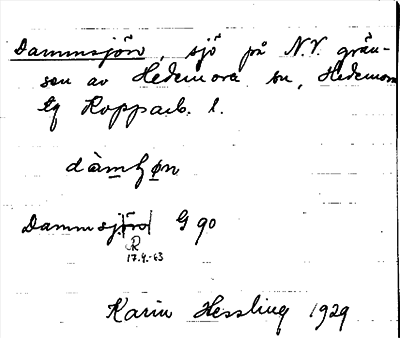 Dammsjön, sjö på N.V. grän-
sen av Hedemora sn, Hedemora
tg Kopparb. l.
dàmʃøn
Dammsj|ön| G 90
R
17.9.-63
Karin Hessling 1929